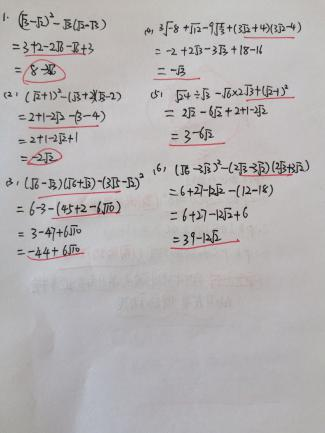 1. (√3-√2)²-√3(√2-√3)
=3+2-2√6-√6+3
=8-3√6
(2): (√2+1)²-(√3+2)(√3-2)
=2+1-2√2-(3-4)
=2+1-2√2+1
=-2√2
(3): (√6-√3)(√6+√3)-(3√5-√2)²
=6-3-(45+2-6√10)
=3-47+6√10
=-44+6√10
(4), 3√-8+√12-9√(1/3)+(3√2+4)(3√2-4)
=-2+2√3-3√3+18-16
=-√3
(5): √24÷√3-√6×2√3+(√2-1)²
=2√2-6√2+2+1-2√2
=3-6√2
(6): (√6-3√3)²-(2√3-3√2)(2√3+3√2)
=6+27-12√2-(12-18)
=6+27-12√2+6
=39-12√2